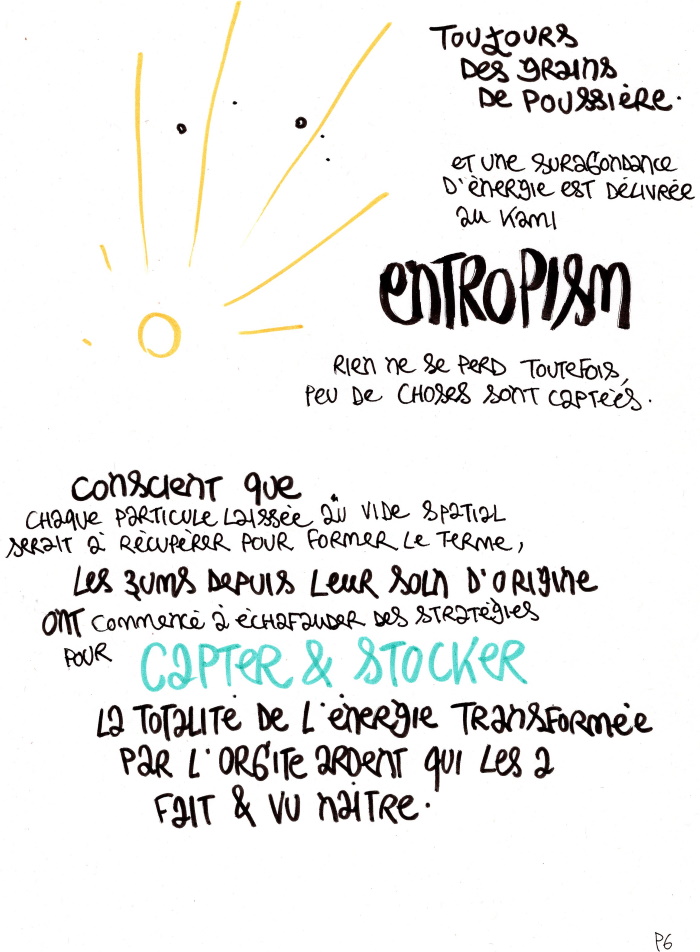 TOUJOURS
DES GRAINS
DE POUSSIÈRE.
ET UNE SURABONDANCE
D'ÉNERGIE EST DÉLIVRÉE
AU KAMI
ENTROPISM
RIEN NE SE PERD TOUTEFOIS,
PEU DE CHOSES SONT CAPTÉES.
CONSCIENT QUE
CHAQUE PARTICULE LAISSÉE AU VIDE SPATIAL
SERAIT À RÉCUPÉRER POUR FORMER LE TERME,
LES ZUMS DEPUIS LEUR SOLN D'ORIGINE
ONT COMMENCÉ À ÉCHAFAUDER DES STRATÉGIES
POUR CAPTER & STOCKER
LA TOTALITÉ DE L'ÉNERGIE TRANSFORMÉE
PAR L'ORBITE ARDENT QUI LES A
FAIT & VU NAITRE.
P6